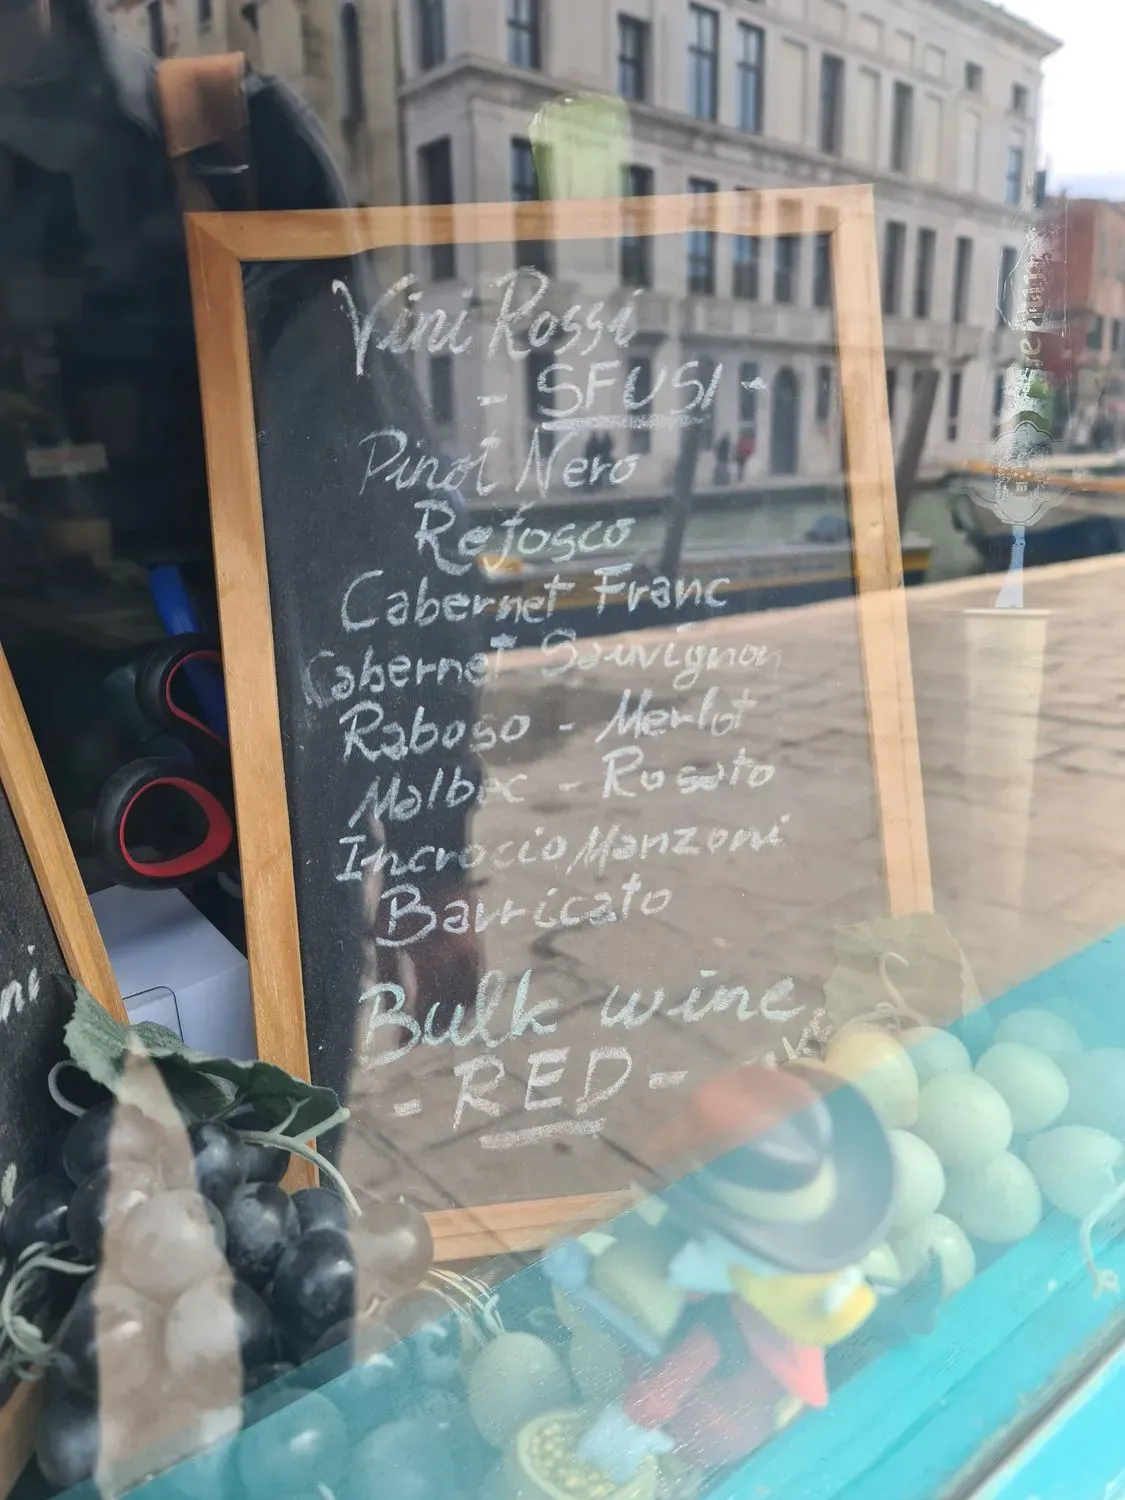 Vini Rossi
- SFUSI -
Pinot Nero
Refosco
Cabernet Franc
Cabernet Sauvignon
Raboso - Merlot
Malbec - Rosato
Incrocio Manzoni
Barricato
Bulk wine
- RED -